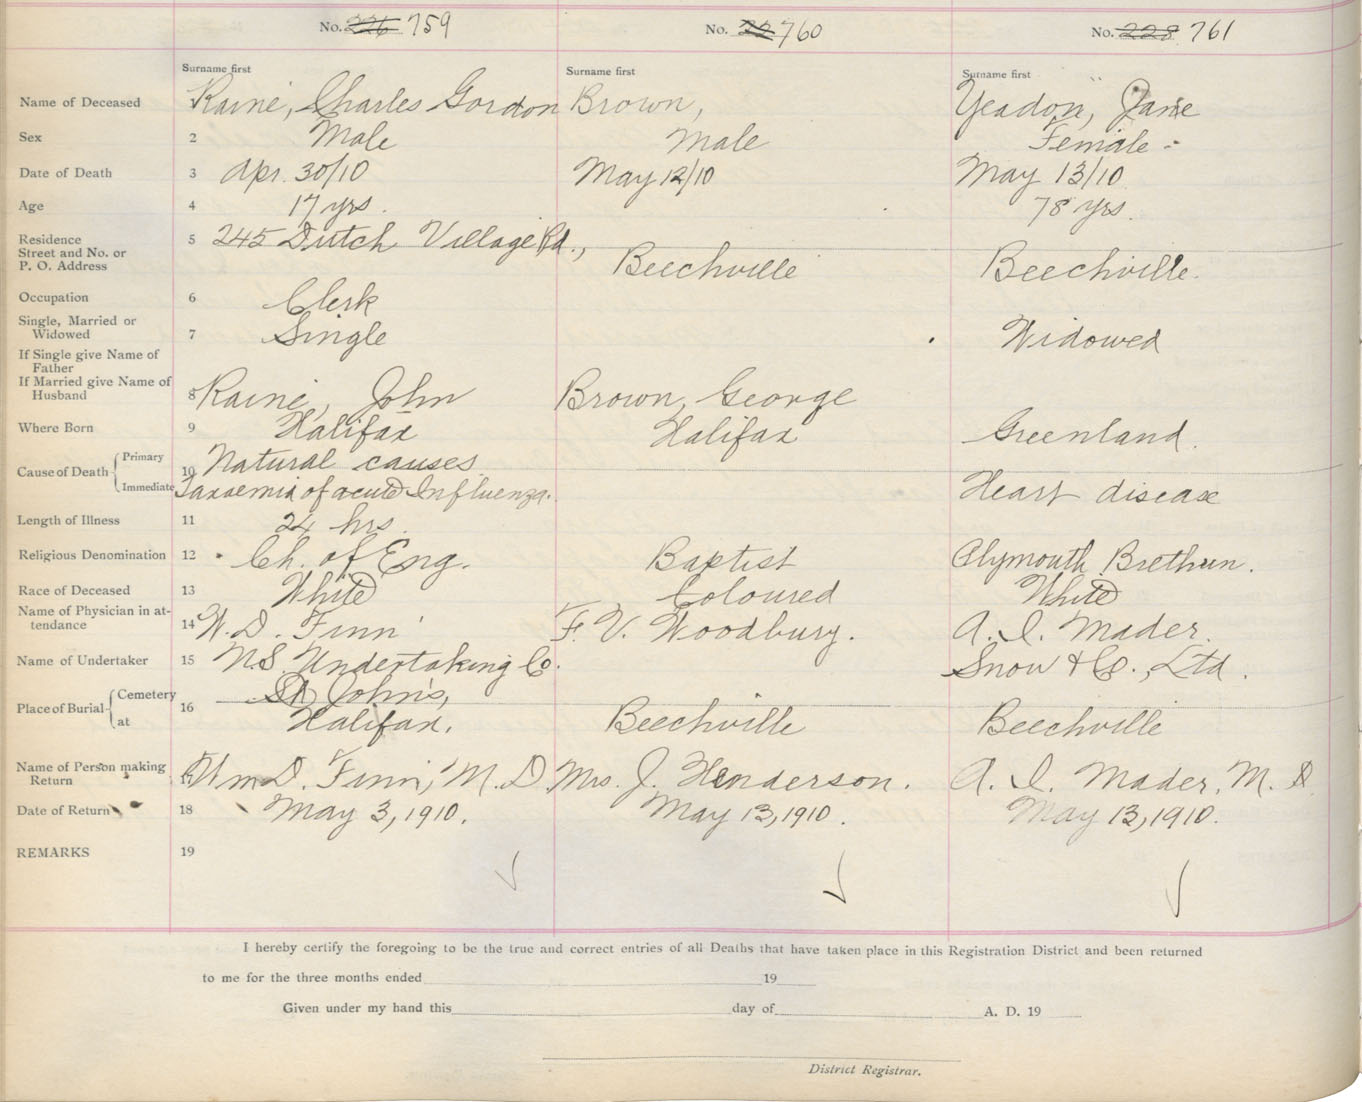 No. 226 759 No. 22 760 No. 228 761
Surname first Surname first Surname first
Name of Deceased Raine, Charles Gordon Brown, Yeadon, Jane
Sex 2 Male Male Female -
Date of Death 3 Apr. 30/10 May 12/10 May 13/10
Age 4 17 yrs. 78 yrs.
Residence
Street and No. or
P. O. Address 5 245 Dutch Village Rd., Beechville Beechville.
Occupation 6 Clerk
Single, Married or
Widowed 7 Single Widowed
If Single give Name of
Father
If Married give Name of
Husband 8 Raine, John Brown, George
Where Born 9 Halifax Halifax Greenland.
Cause of Death Primary 10 Natural causes
Immediate of acute Influenza. Heart disease
Length of Illness 11 24 hrs.
Religious Denomination 12 Ch. of Eng. Baptist Plymouth Brethren.
Race of Deceased 13 White Coloured White
Name of Physician in at-
tendance 14 W. D. Finn F. V. Woodbury. A. I. Mader.
Name of Undertaker 15 N.S. Undertaking Co. Snow & Co., Ltd.
Place of Burial Cemetery 16 St John's,
at Halifax. Beechville Beechville
Name of Person making
Return Wm D. Finn, M.D. Mrs. J. Henderson. A. I. Mader, M. D
Date of Return 18 May 3, 1910. May 13, 1910. May 13, 1910.
REMARKS 19
I hereby certify the foregoing to be the true and correct entries of all Deaths that have taken place in this Registration District and been returned
to me for the three months ended 19
Given under my hand this day of A. D. 19
District Registrar.